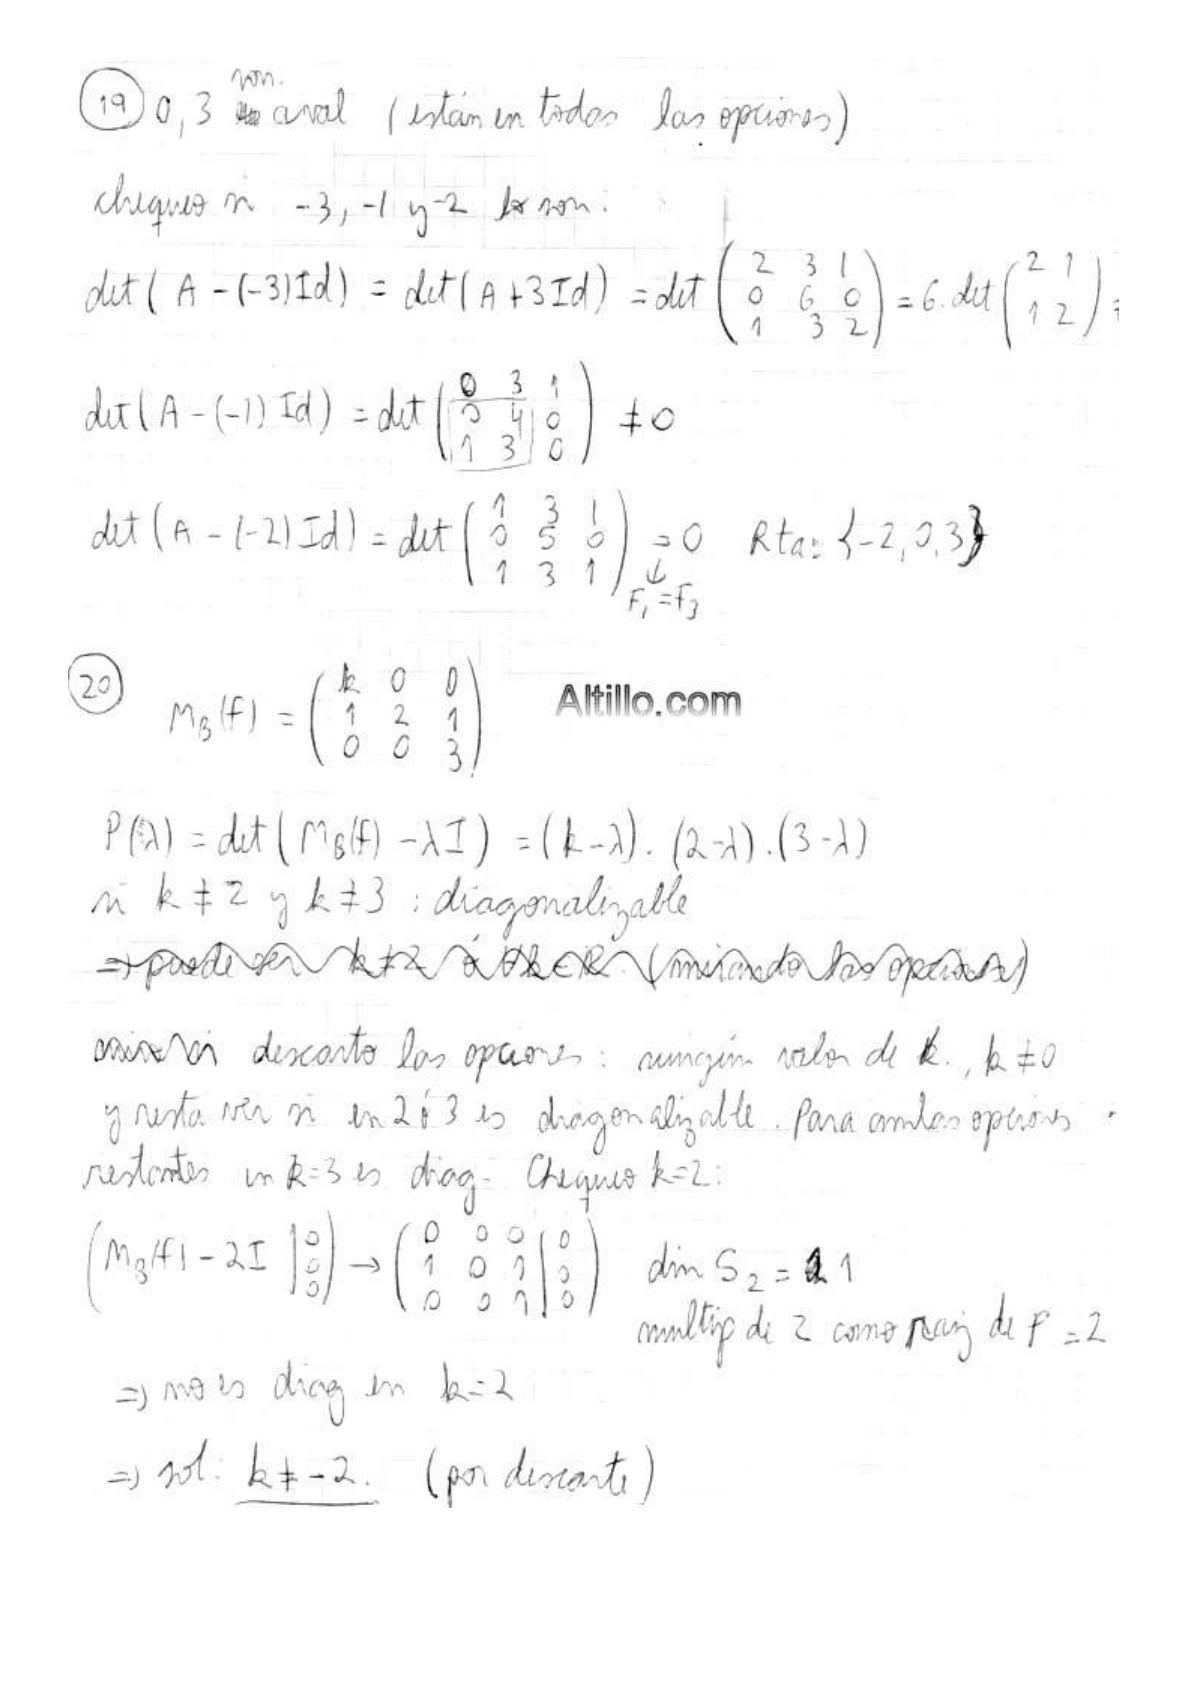 19 0, 3 son aval (están en todas las opciones)
chequeo si -3, -1 y -2 lo son:
det(A - (-3)Id) = det(A + 3Id) = det ( 2 3 1 / 0 6 0 / 1 3 2 ) = 6. det ( 2 1 / 1 2 ) =
det(A - (-1)Id) = det ( 0 3 1 / 0 4 0 / 1 3 0 ) ≠ 0
det(A - (-2)Id) = det ( 1 3 1 / 0 5 0 / 1 3 1 ) = 0 Rta: {-2, 0, 3}
↓
F₁ = F₃
20 M_B(f) = ( k 0 0 / 1 2 1 / 0 0 3 )
Altillo.com
P(λ) = det(M_B(f) - λI) = (k-λ). (2-λ).(3-λ)
si k ≠ 2 y k ≠ 3 : diagonalizable
⇒ puede ser k ≠ 2 ó ∀k∈R. (mirando las opciones)
descarto las opciones: ningún valor de k., k ≠ 0
y resta ver si en 2 ó 3 es diagonalizable. Para ambas opciones
restantes en k=3 es diag. Chequeo k=2:
( M_B(f) - 2I | 0 / 0 / 0 ) → ( 0 0 0 | 0 / 1 0 1 | 0 / 0 0 1 | 0 ) dim S₂ = 1
multip de 2 como raiz de P = 2
⇒ no es diag en k=2
⇒ sol: k ≠ -2. (por descarte)